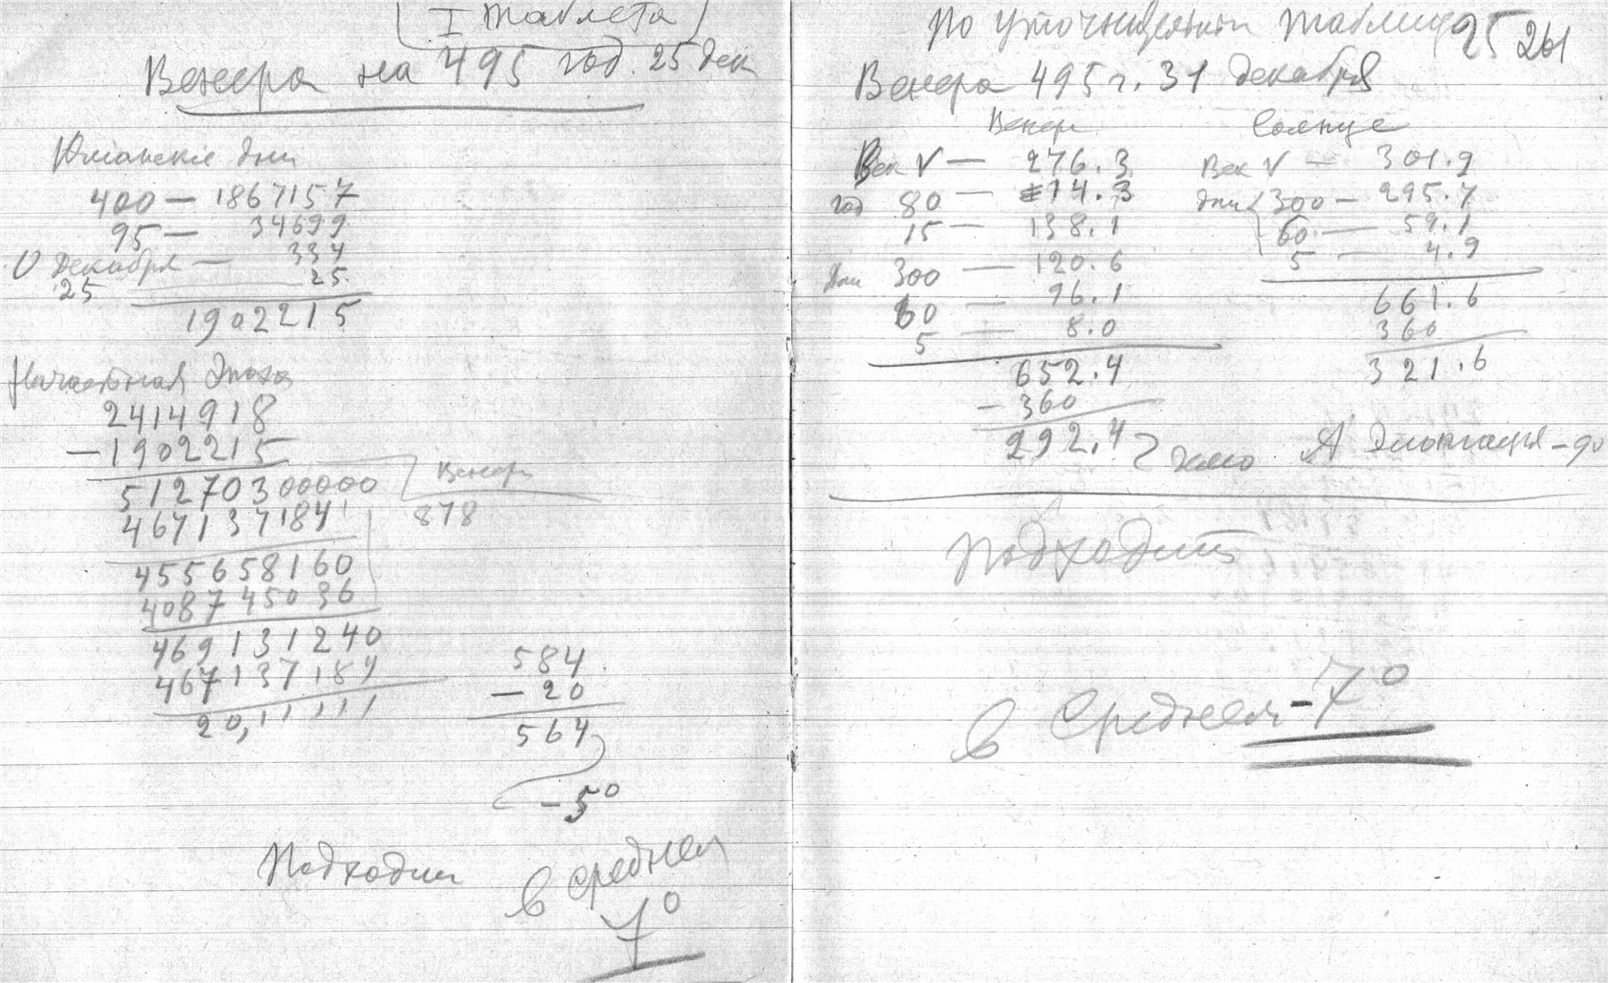 I таблета
Венера на 495 год. 25 дек
Юлианские дни
400 — 1867157
95 — 34699
0 декабря — 334
25 25
1902215
Начальная Эпоха
2414918
— 1902215
51270300000 Венер
467137184 878
455658160
408745036
469131240
467137184
20,11111
584
— 20
564
— 5°
Подходит
в среднем
7°
По уточнительной таблице
25 261
Венера 495 г. 31 декабря
Венера Солнце
Век V — 276.3 Век V — 301.9
год 80 — 14.3 дни 300 — 295.7
15 — 138.1 60 — 59.1
дни 300 — 120.6 5 — 4.9
60 — 96.1 661.6
5 — 8.0 360
652.4 321.6
— 360
292.4 Элонгация
Подходит
в среднем -7°